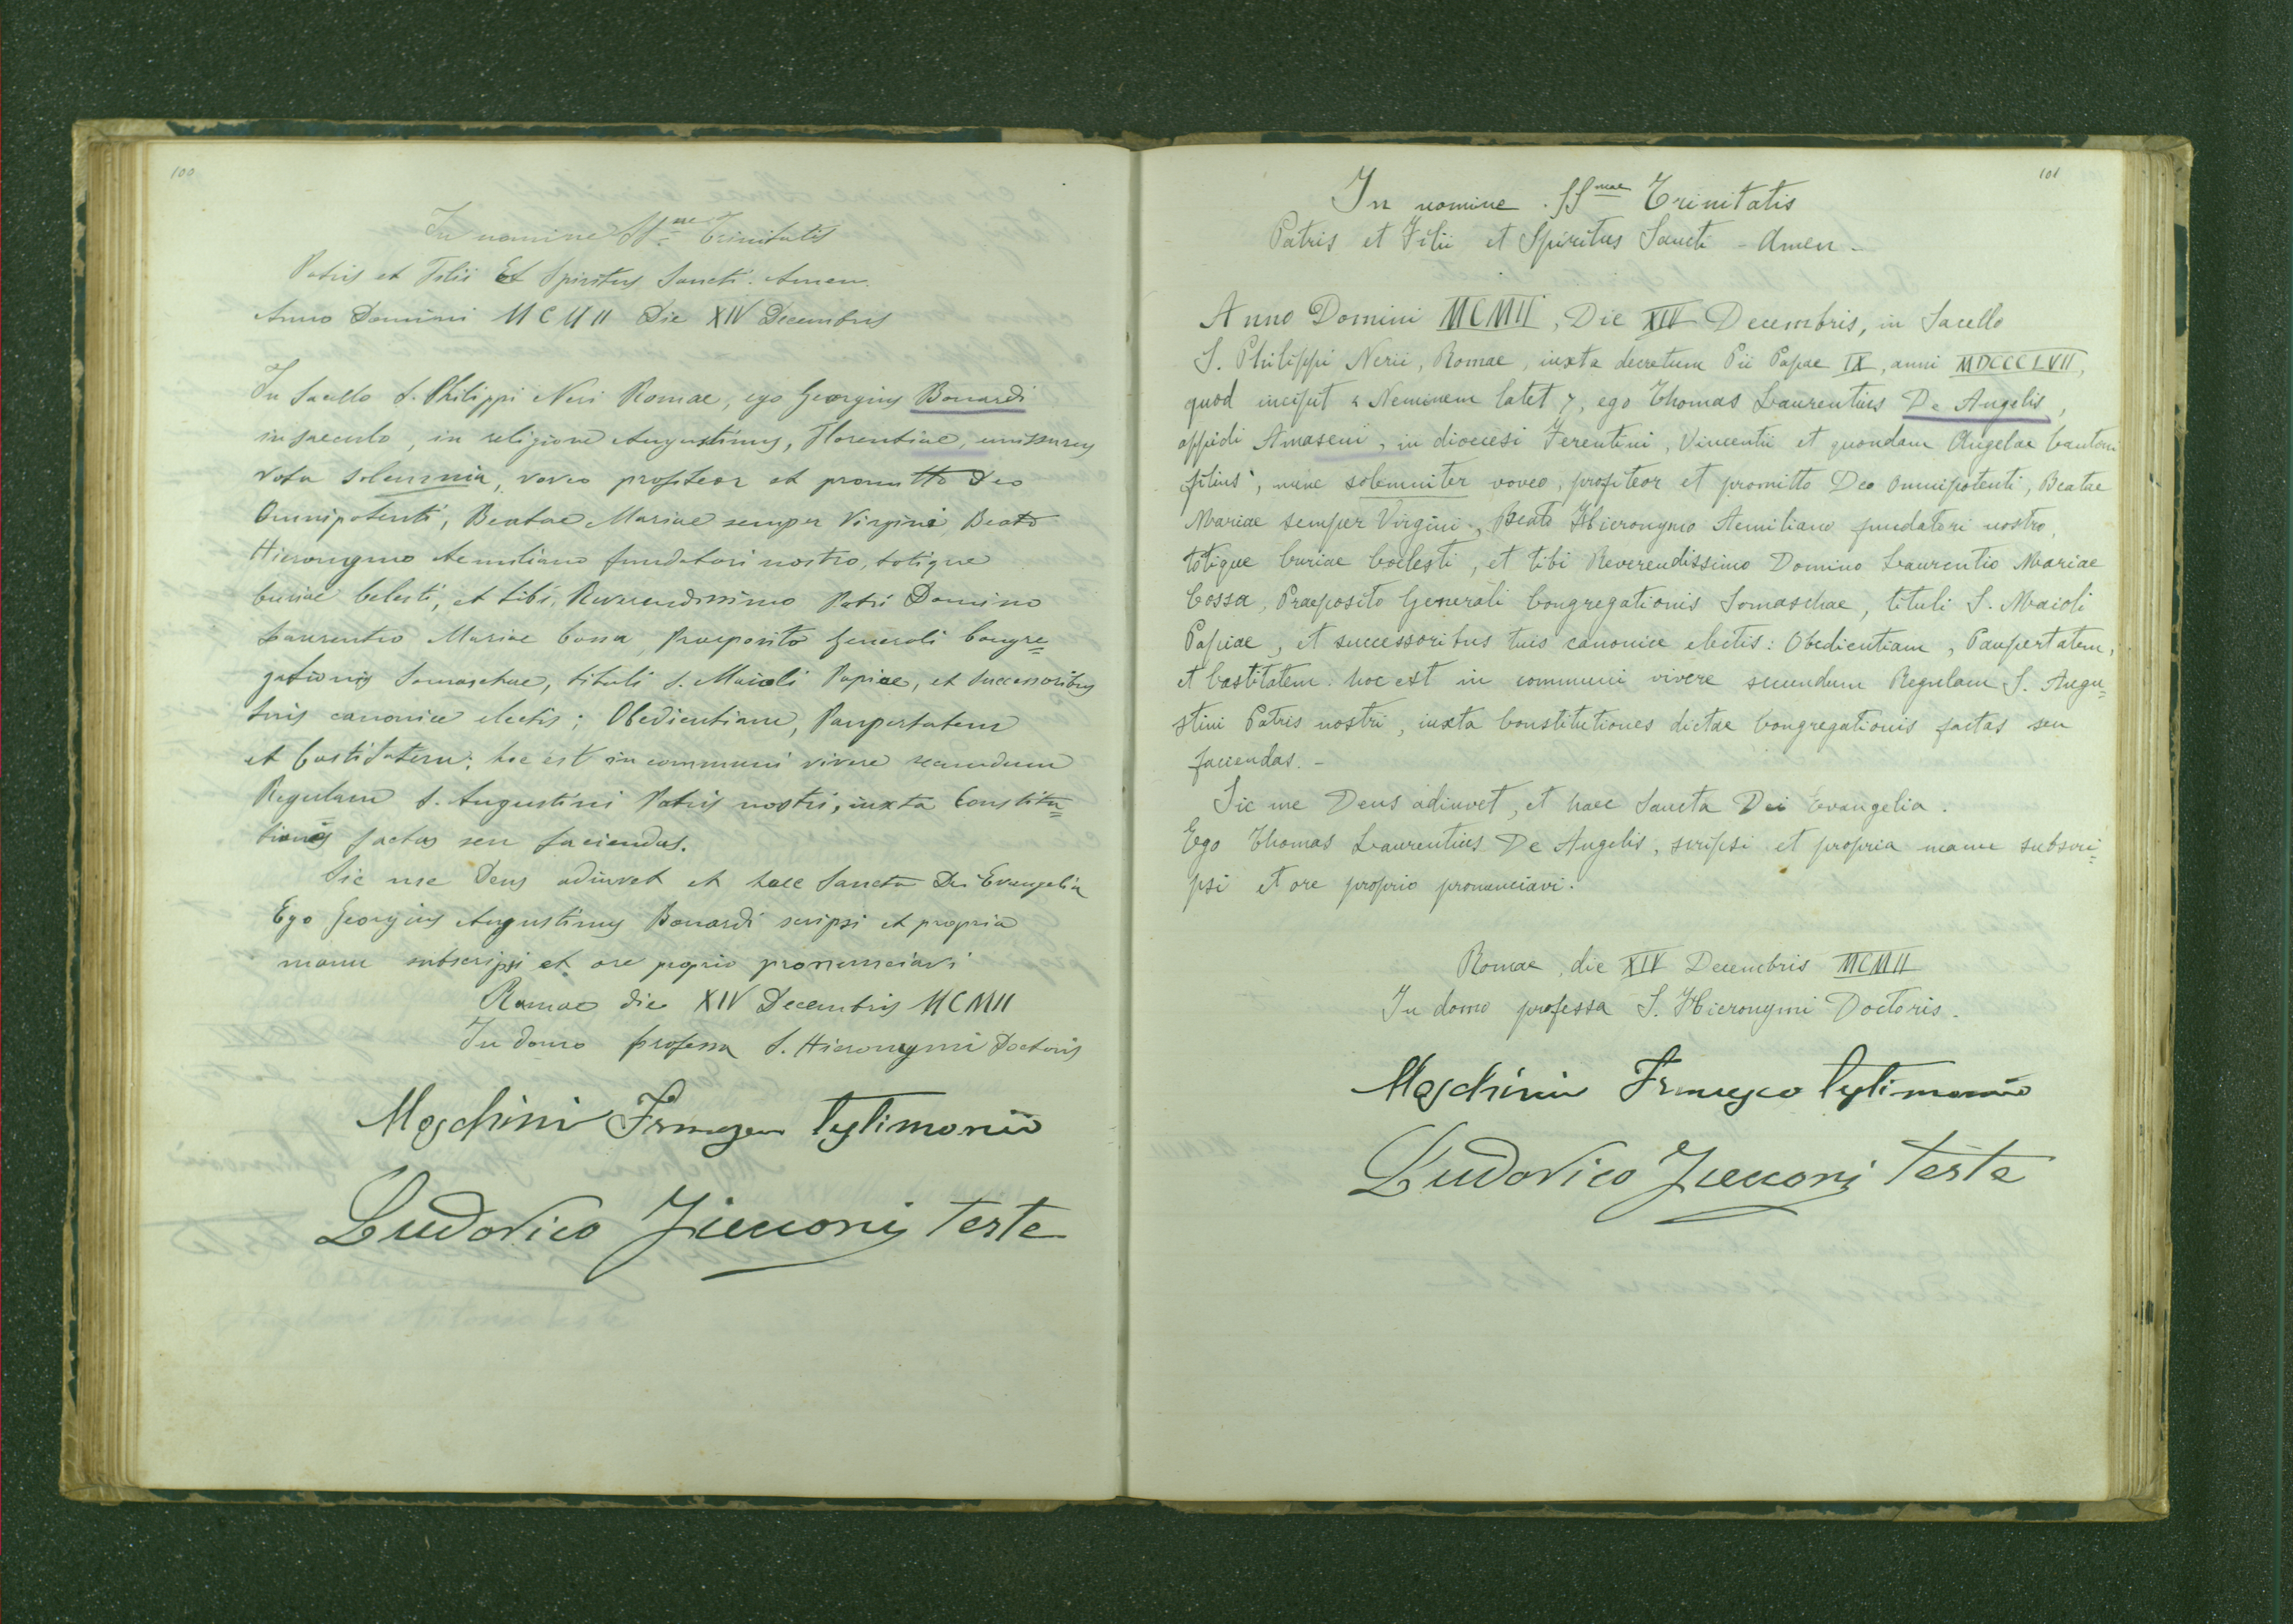 100
In nomine SS.mae Trinitatis
Patris et Filii Et Spiritus Sancti. Amen.
Anno Domini MCMII Die XIV Decembris
In Sacello S. Philippi Neri Romae, ego Georgius Bonardi
in saeculo, in religione Augustinus, Florentiae,
vota solemnia, voveo profiteor et promitto Deo
Omnipotenti, Beatae Mariae semper Virgini, Beato
Hieronymo Aemiliano fundatori nostro, totique
Curiae Celesti, et tibi, Reverendissimo Patri Domino
Laurentio Mariae Cossa, Praeposito Generali Congre=
gationis Somaschae, tituli S. Maioli Papiae, et successoribus
tuis canonice electis; Obedientiam, Paupertatem
et Castitatem; hoc est in communi vivere secundum
Regulam S. Augustini Patris nostri, iuxta Constitu=
tiones factas seu faciendas.
Sic me Deus adiuvet et haec Sancta Dei Evangelia
Ego Georgius Augustinus Bonardi scripsi et propria
manu subscripsi et ore proprio pronunciavi
Romae die XIV Decembris MCMII
In domo professa S. Hieronymi Doctoris
Moschini Francesco testimonio
Ludovico Zicconi teste
101
In nomine SS.mae Trinitatis
Patris et Filii et Spiritus Sancti - Amen -
Anno Domini MCMII, Die XIV Decembris, in Sacello
S. Philippi Nerii, Romae, iuxta decretum Pii Papae IX, anni MDCCCLVII,
quod incipit « Neminem latet », ego Thomas Laurentius De Angelis,
oppidi Amaseni, in diocesi Ferentini, Vincentii et quondam Angelae Cantoni
filius, nunc solemniter voveo, profiteor et promitto Deo omnipotenti, Beatae
Mariae semper Virgini, Beato Hieronymo Aemiliano fundatori nostro,
totique Curiae Coelesti, et tibi Reverendissimo Domino Laurentio Mariae
Cossa, Praeposito Generali Congregationis Somaschae, tituli S. Maioli
Papiae, et successoribus tuis canonice electis: Obedientiam, Paupertatem,
et Castitatem. hoc est in communi vivere secundum Regulam S. Augu=
stini Patris nostri, iuxta Constitutiones dictae Congregationis factas seu
faciendas. -
Sic me Deus adiuvet, et haec Sancta Dei Evangelia.
Ego Thomas Laurentius De Angelis, scripsi et propria manu subscri=
psi et ore proprio pronunciavi.
Romae, die XIV Decembris MCMII
In domo professa S. Hieronymi Doctoris.
Moschini Francesco testimonio
Ludovico Zicconi teste